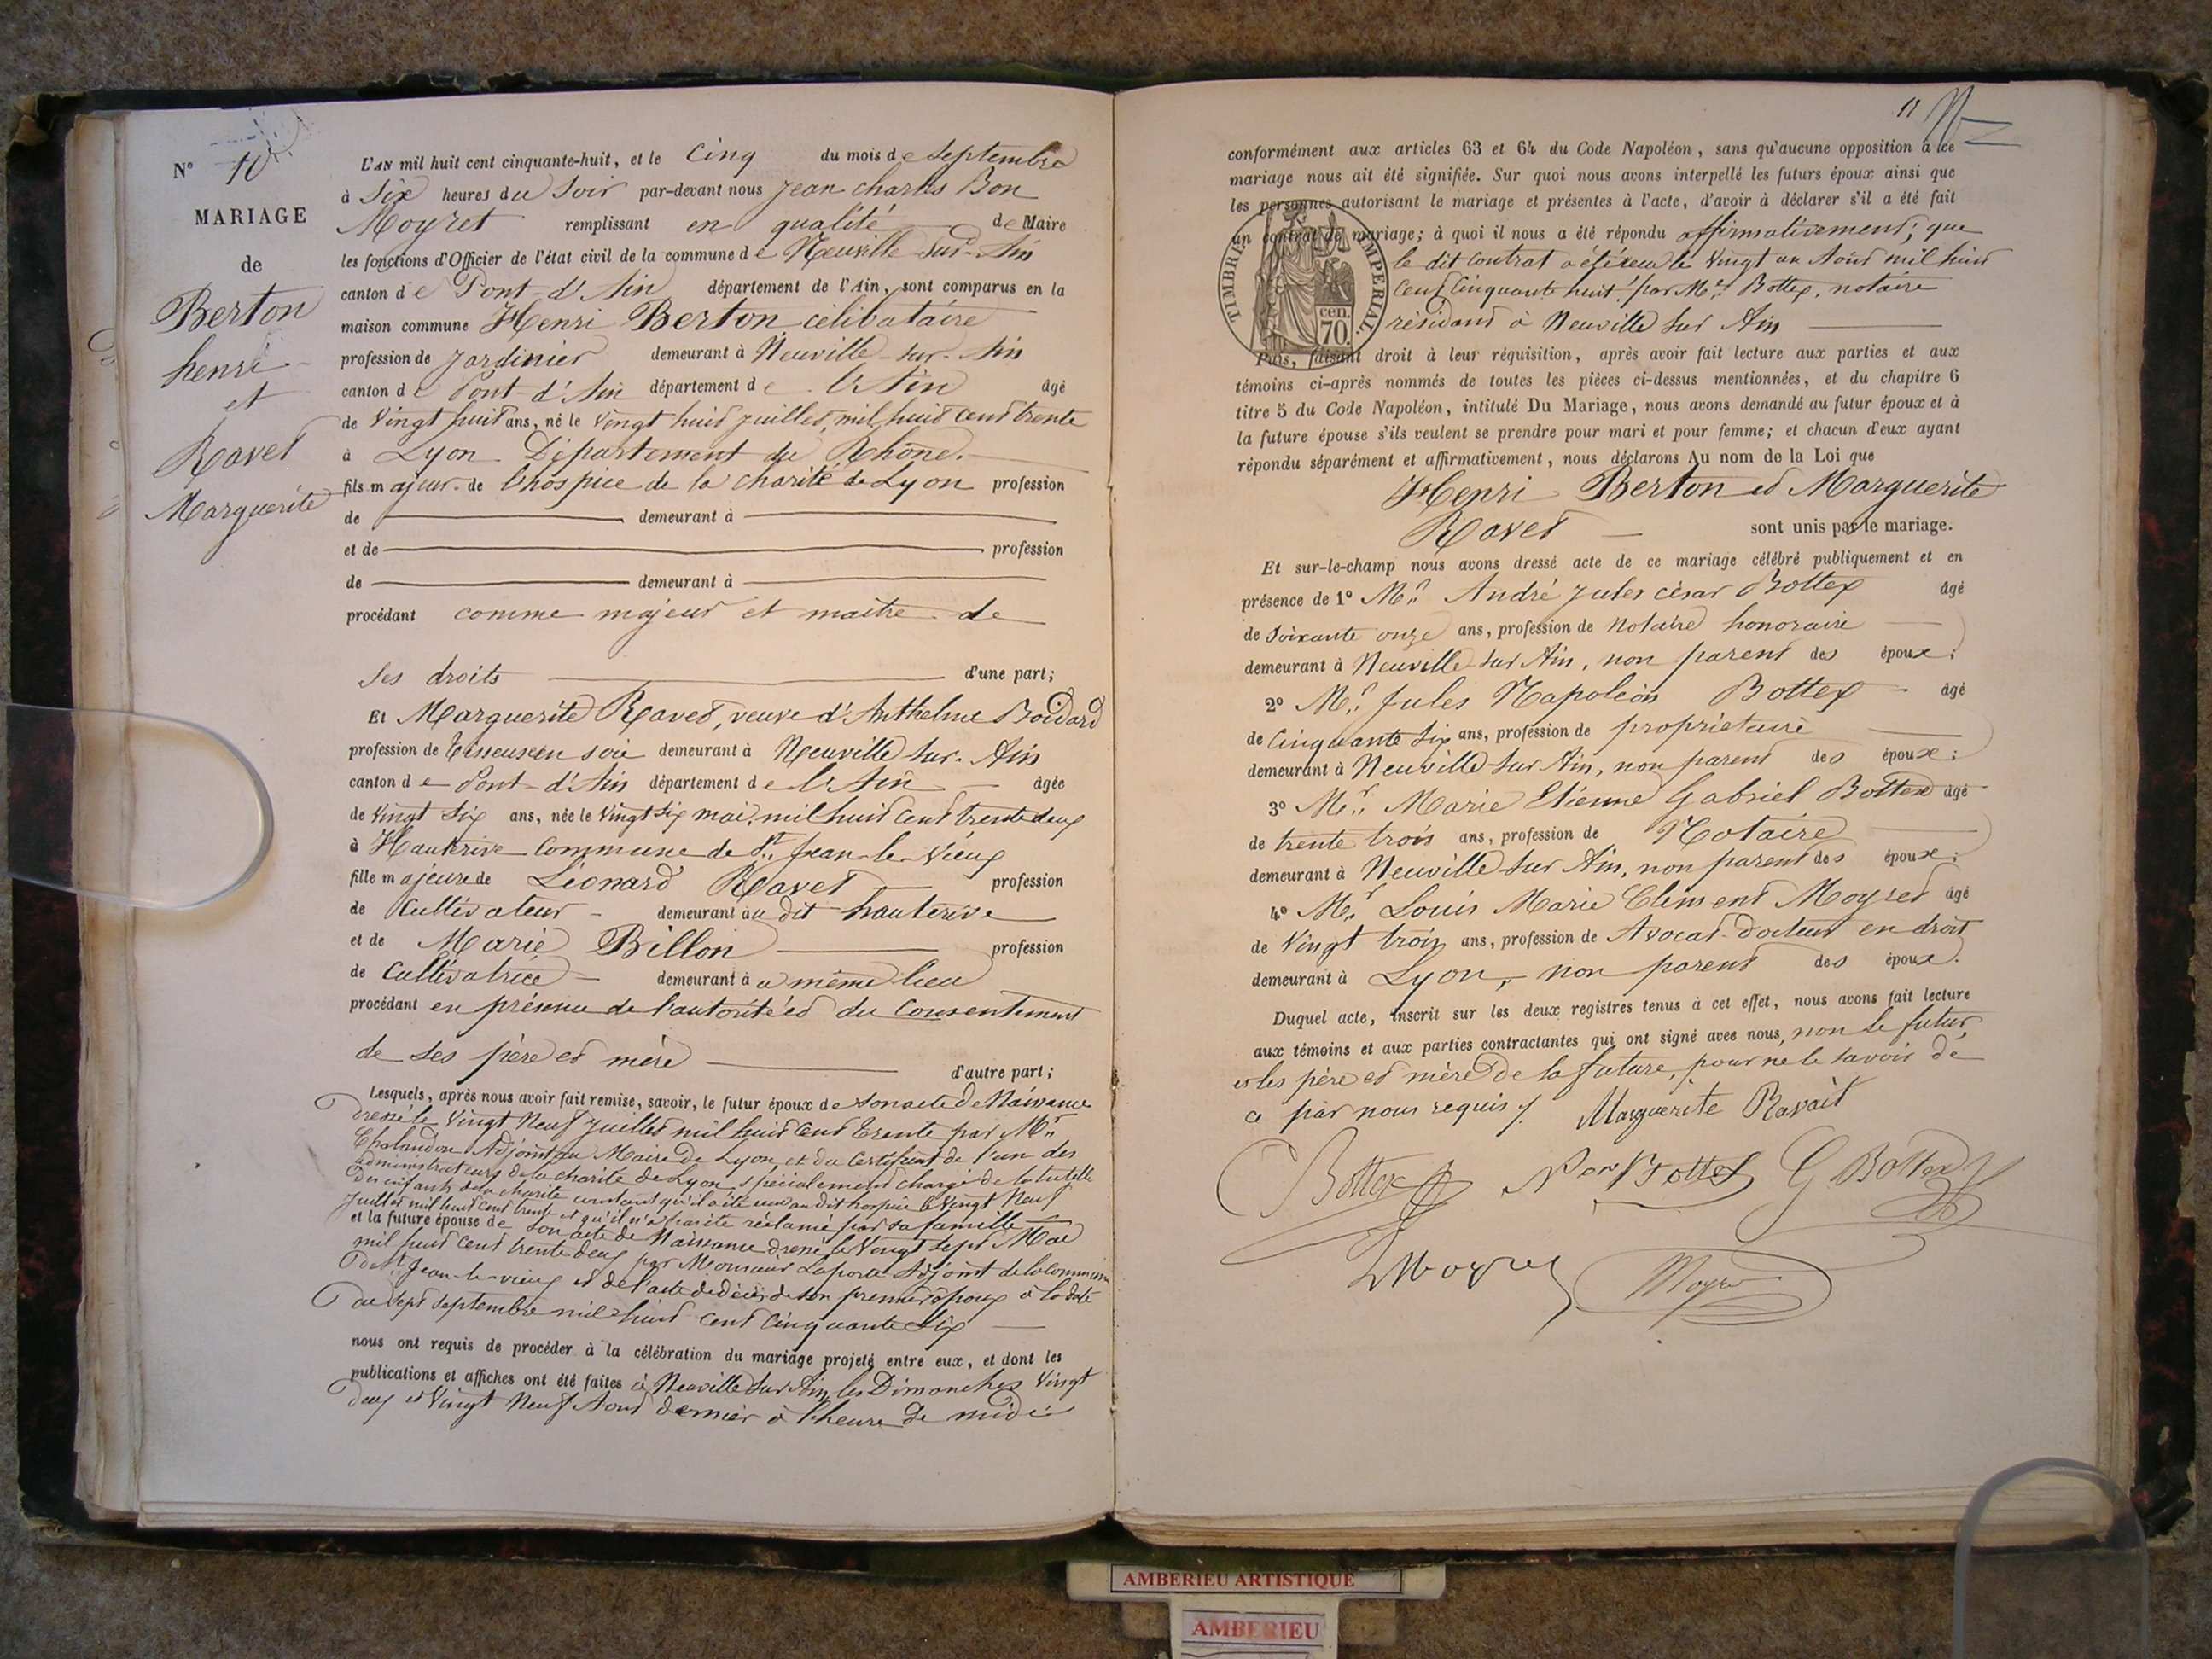 N° 10
MARIAGE
de
Berton
henri
et
Ravet
Marguerite
L'AN mil huit cent cinquante-huit, et le Cinq du mois de Septembre
à Six heures du Soir par-devant nous Jean charles Bon
Moyret remplissant en qualité de Maire
les fonctions d'Officier de l'état civil de la commune de Neuville-sur-Ain
canton de Pont-d'Ain département de l'Ain, sont comparus en la
maison commune Henri Berton célibataire
profession de Jardinier demeurant à Neuville-sur-Ain
canton de Pont-d'Ain département de l'Ain âgé
de Vingt huit ans, né le Vingt huit juillet, mil huit cent trente
à Lyon Département du Rhône.
fils majeur de l'hospice de la charité de Lyon profession
de demeurant à
et de profession
de demeurant à
procédant comme majeur et maitre de
ses droits d'une part;
Et Marguerite Ravet, veuve d'Anthelme Boidard
profession de Tisseuse en soie demeurant à Neuville sur-Ain
canton de Pont-d'Ain département de l'Ain âgée
de Vingt Six ans, née le Vingt Six mai, mil huit cent trente deux
à Hauterive Commune de St. Jean-le-Vieux
fille majeure de Léonard Ravet profession
de Cultivateur demeurant au dit hauterive
et de Marie Billon profession
de Cultivatrice demeurant au même lieu
procédant en présence de l'autorité et du Consentement
de ses père et mère d'autre part;
Lesquels, après nous avoir fait remise, savoir, le futur époux de son acte de Naissance
dressé le Vingt Neuf Juillet mil huit cent trente par Mr.
Chalandon Adjoint au Maire de Lyon, et du Certificat de l'un des
administrateurs de la charité de Lyon spécialement chargé de la tutelle
des enfants de la charité constatant qu'il a été reçu au dit hospice le Vingt Neuf
Juillet mil huit cent trente et qu'il n'a pas été réclamé par sa famille
et la future épouse de son acte de Naissance dressé le Vingt Sept Mai
mil huit cent trente deux par Monsieur Laporte Adjoint de la commune
de St. Jean-le-vieux et de l'acte de décès de son premier époux à la date
du Sept Septembre mil huit cent Cinquante Six
nous ont requis de procéder à la célébration du mariage projeté entre eux, et dont les
publications et affiches ont été faites à Neuville sur Ain les Dimanches Vingt
deux et Vingt Neuf Aout dernier à l'heure de midi
11
conformément aux articles 63 et 64 du Code Napoléon, sans qu'aucune opposition à ce
mariage nous ait été signifiée. Sur quoi nous avons interpellé les futurs époux ainsi que
les personnes autorisant le mariage et présentes à l'acte, d'avoir à déclarer s'il a été fait
un contrat de mariage; à quoi il nous a été répondu affirmativement; que
le dit contrat a été reçu le Vingt un Aout mil huit
cent Cinquante huit, par Me. Bottex, notaire
résidant à Neuville sur Ain
TIMBRE IMPERIAL.
cen.
70.
Puis, faisant droit à leur réquisition, après avoir fait lecture aux parties et aux
témoins ci-après nommés de toutes les pièces ci-dessus mentionnées, et du chapitre 6
titre 5 du Code Napoléon, intitulé Du Mariage, nous avons demandé au futur époux et à
la future épouse s'ils veulent se prendre pour mari et pour femme; et chacun d'eux ayant
répondu séparément et affirmativement, nous déclarons Au nom de la Loi que
Henri Berton et Marguerite
Ravet sont unis par le mariage.
Et sur-le-champ nous avons dressé acte de ce mariage célébré publiquement et en
présence de 1° Mr. André Jules césar Bottex âgé
de Soixante onze ans, profession de Notaire honoraire
demeurant à Neuville sur Ain, non parent des époux;
2° Mr. Jules Napoléon Bottex âgé
de Cinquante Six ans, profession de propriétaire
demeurant à Neuville sur Ain, non parent des époux;
3° Mr. Marie Etienne Gabriel Bottex âgé
de trente trois ans, profession de Notaire
demeurant à Neuville sur Ain, non parent des époux;
4° Mr. Louis Marie Clément Moyret âgé
de Vingt trois ans, profession de Avocat-docteur en droit
demeurant à Lyon, non parent des époux.
Duquel acte, inscrit sur les deux registres tenus à cet effet, nous avons fait lecture
aux témoins et aux parties contractantes qui ont signé avec nous, non le futur,
et les père et mère de la future, pour ne le savoir de
ce par nous requis /. Marguerite Ravait
Bottex Non Bottex G Bottex
L Moyret Moyret
AMBERIEU ARTISTIQUE
AMBERIEU